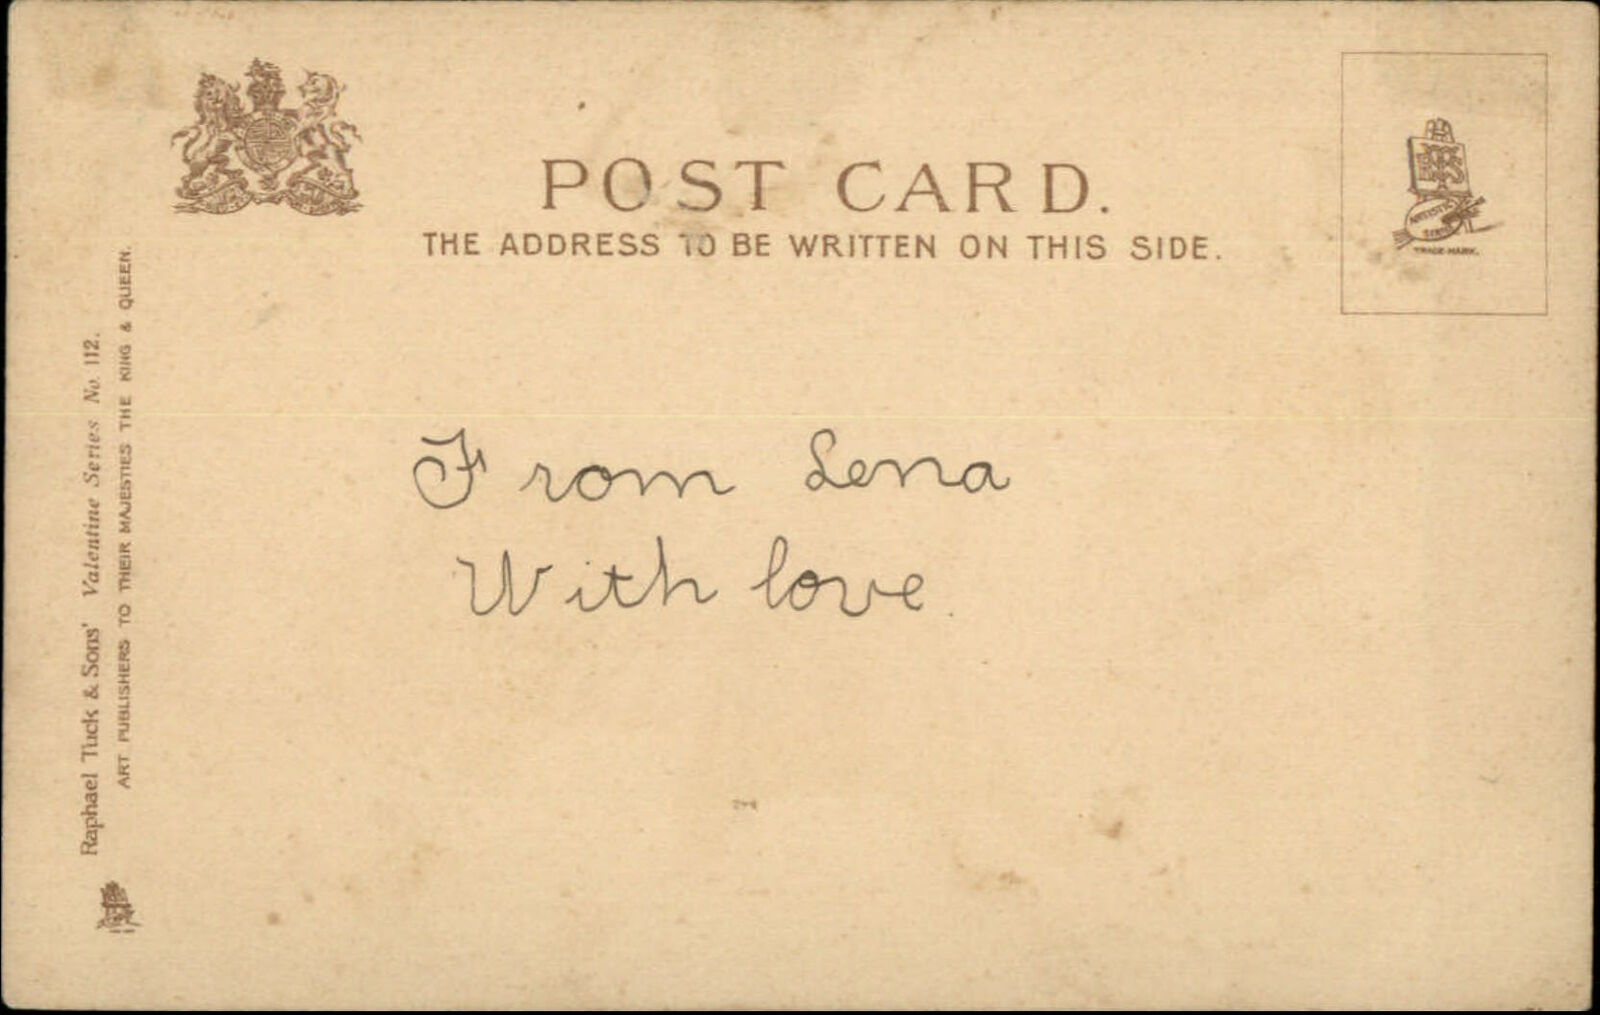 POST CARD.
THE ADDRESS TO BE WRITTEN ON THIS SIDE.
Raphael Tuck & Sons' Valentine Series No. 112.
ART PUBLISHERS TO THEIR MAJESTIES THE KING & QUEEN.
ARTISTIC
TRADE-MARK.
From Lena
With love.